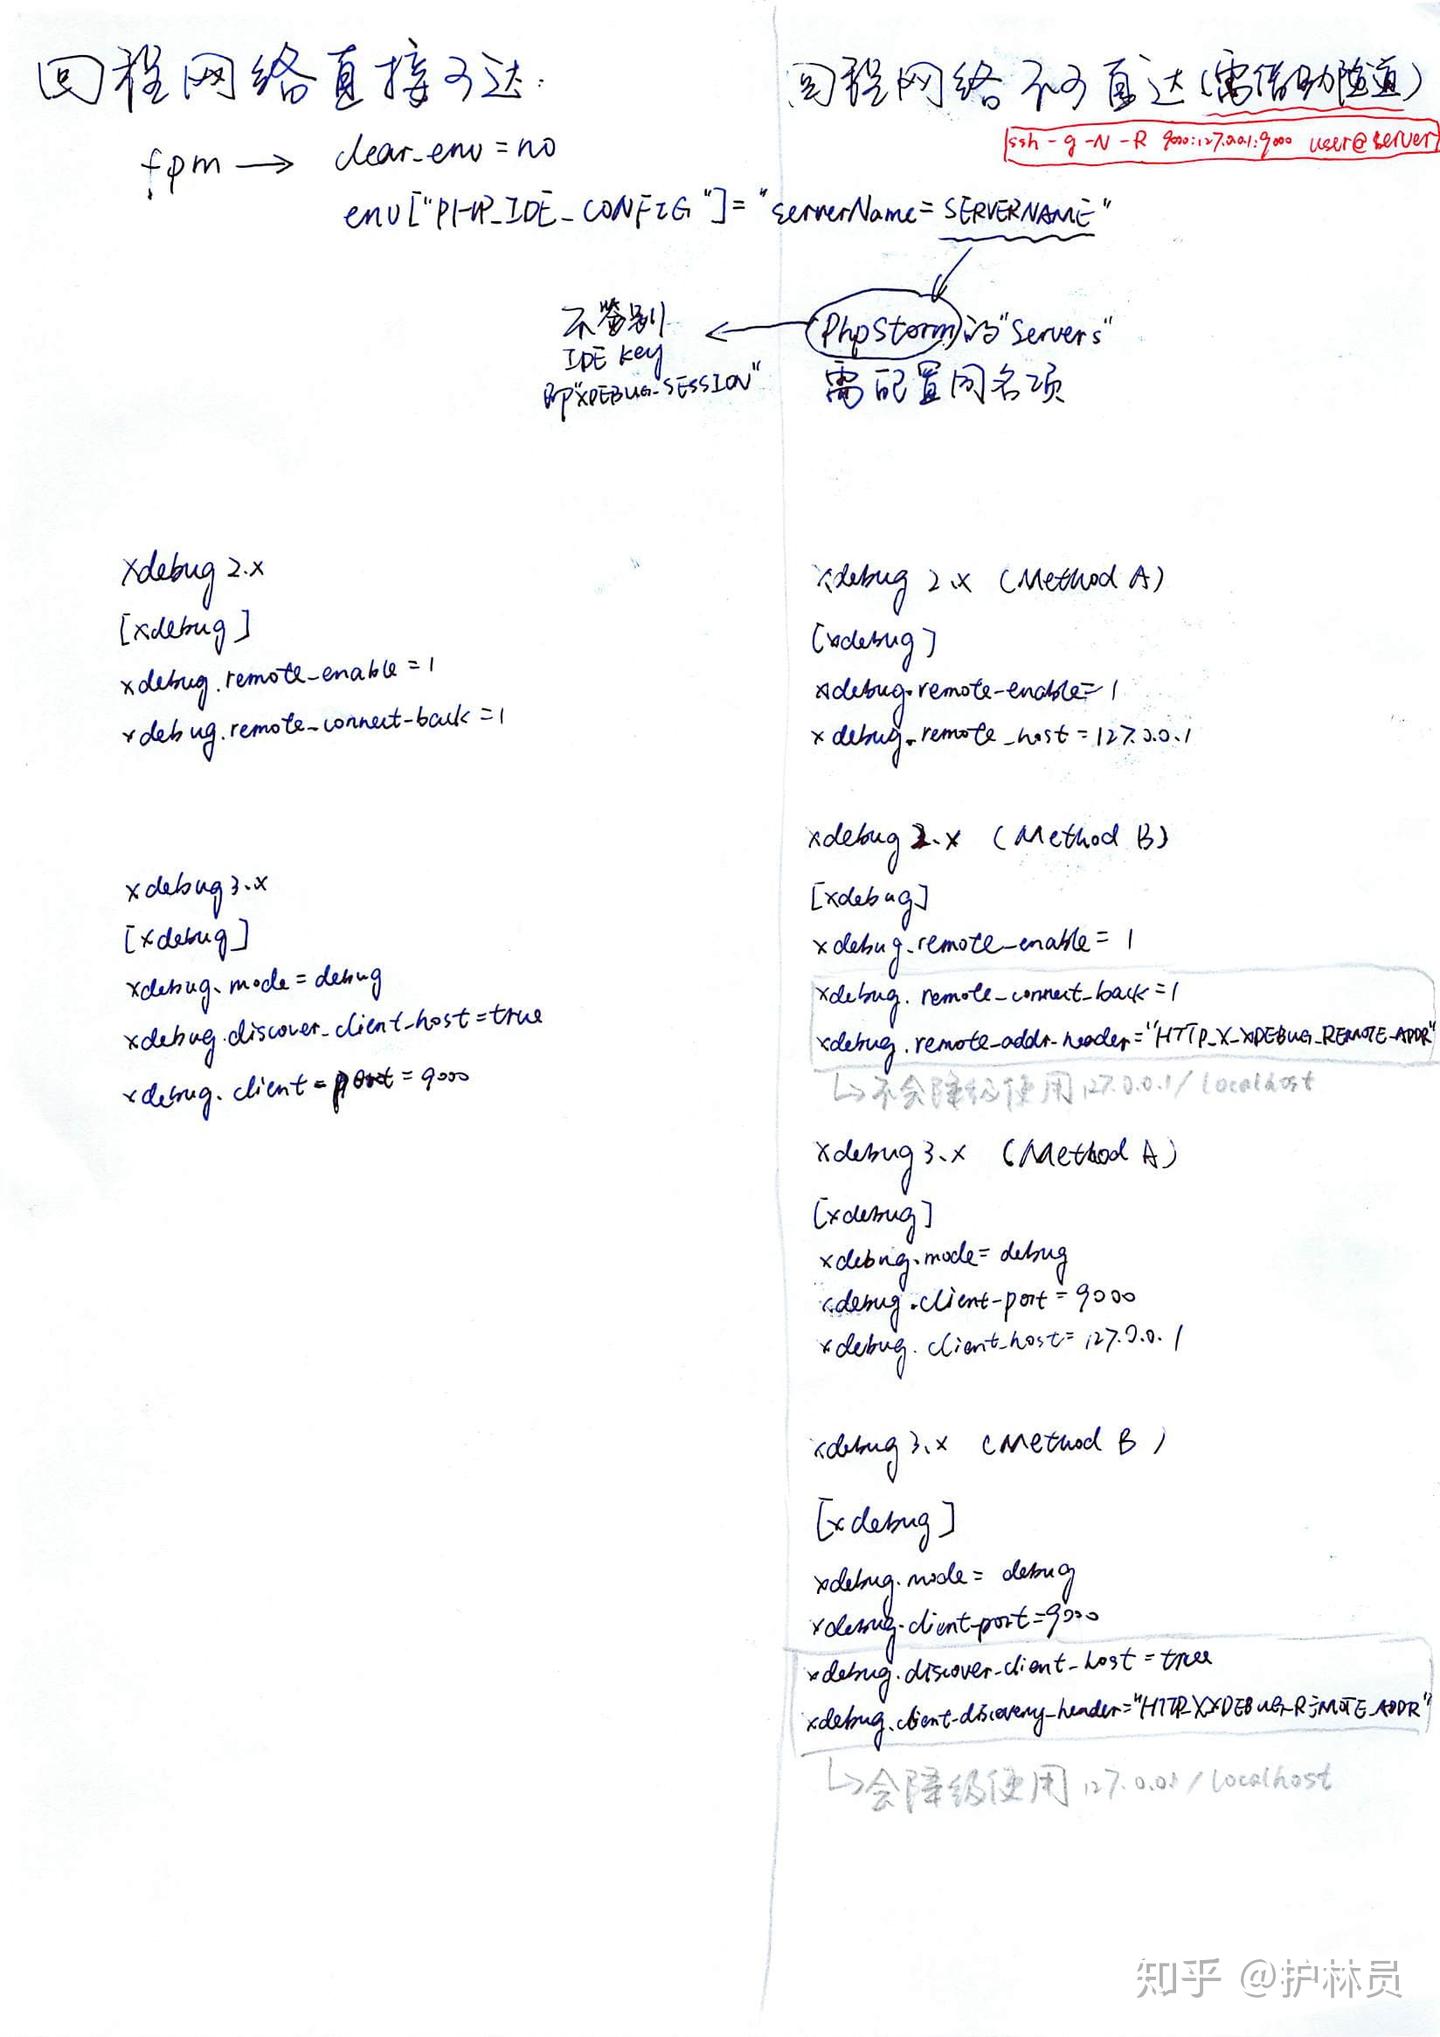 回程网络直接可达:
fpm → clear_env = no
env["PHP_IDE_CONFIG"]="serverName=SERVERNAME"
回程网络不可直达(需借助隧道)
ssh -g -N -R 9000:127.0.0.1:9000 user@server
PhpStorm的"Servers"
需配置同名项
不鉴别
IDE key
即"XDEBUG_SESSION"
xdebug 2.x
[xdebug]
xdebug.remote_enable=1
xdebug.remote_connect_back=1
xdebug 3.x
[xdebug]
xdebug.mode=debug
xdebug.discover_client_host=true
xdebug.client_port=9000
xdebug 2.x (Method A)
[xdebug]
xdebug.remote_enable=1
xdebug.remote_host=127.0.0.1
xdebug 2.x (Method B)
[xdebug]
xdebug.remote_enable=1
xdebug.remote_connect_back=1
xdebug.remote_addr_header="HTTP_X_XDEBUG_REMOTE_ADDR"
↳不会降级使用127.0.0.1/localhost
xdebug 3.x (Method A)
[xdebug]
xdebug.mode=debug
xdebug.client_port=9000
xdebug.client_host=127.0.0.1
xdebug 3.x (Method B)
[xdebug]
xdebug.mode=debug
xdebug.client_port=9000
xdebug.discover_client_host=true
xdebug.client_discovery_header="HTTP_X_XDEBUG_REMOTE_ADDR"
↳会降级使用127.0.0.1/localhost
知乎 @护林员